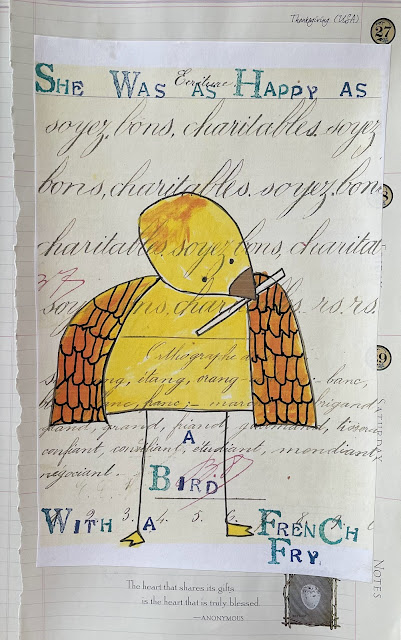 Thanksgiving (USA)
27
SHE WAS AS HAPPY AS
Ecriture
soyez, bons, charitables. soyez
bons, charitables. soyez. bon
charitables. soyez bons, charita
soy bons, charitables. rs. rs.
Orthographe
ng, étang, orang banc,
franc; brigand
grand, friand, gourmand,
confiant, étudiant, mendiant
négociant.
A
BIRD
2. 3. 4. 5. 6. 8.
WITH A FRENCH
FRY
9
SATURDAY
NOTES
The heart that shares its gifts
is the heart that is truly blessed.
—ANONYMOUS